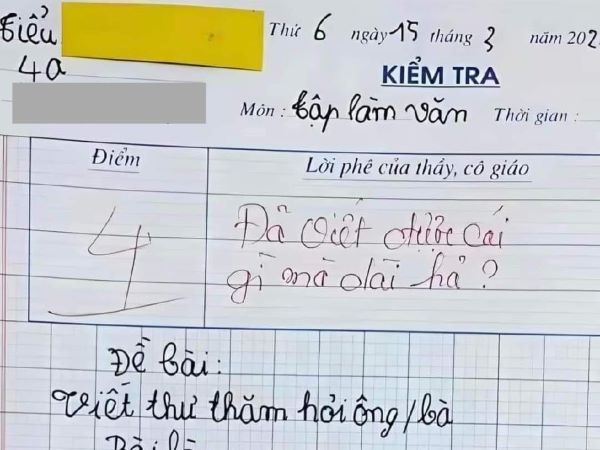 Tiểu
4a
Thứ 6 ngày 15 tháng 3 năm 202
KIỂM TRA
Môn : tập làm văn Thời gian :
Điểm
Lời phê của thầy, cô giáo
4
Đã viết được cái
gì mà dài hả ?
Đề bài :
viết thư thăm hỏi ông/bà